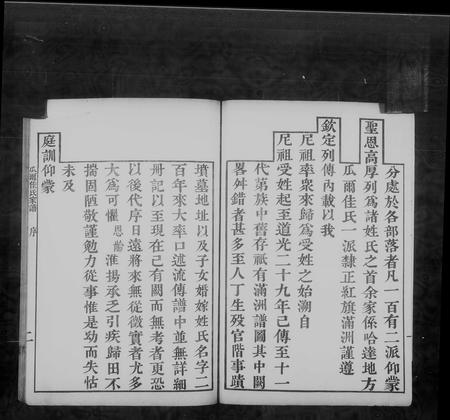 分處於各部落者凡一百有二派仰蒙
聖恩高厚列為諸姓氏之首余家係哈達地方
瓜爾佳氏一派隸正紅旗滿洲謹遵
欽定列傳內載以我
尼祖率衆來歸為受姓之始溯自
尼祖受姓起至道光二十九年已傳至十一
代第族中舊存祇有滿洲譜圖其中闕
畧舛錯者甚多至人丁生歿官階事蹟
墳墓地址以及子女婚嫁姓氏名字二
百年來大率口述流傳譜中並無詳細
冊記以至現在已有闕而無考者更恐
以後代序日遠將來無從徵實者尤多
大為可懼恩齡淮揚承乏引疾歸田不
揣固陋敬謹勉力從事惟是功而失怙
未及
庭訓仰蒙
瓜爾佳氏家譜 序 二